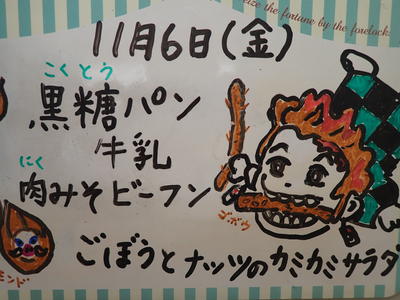 eize the fortune by the forelock.
11月6日(金)
こくとう
黒糖パン
牛乳
にく
肉みそビーフン
ゴボウ
ごぼうとナッツのカミカミサラダ
モンド